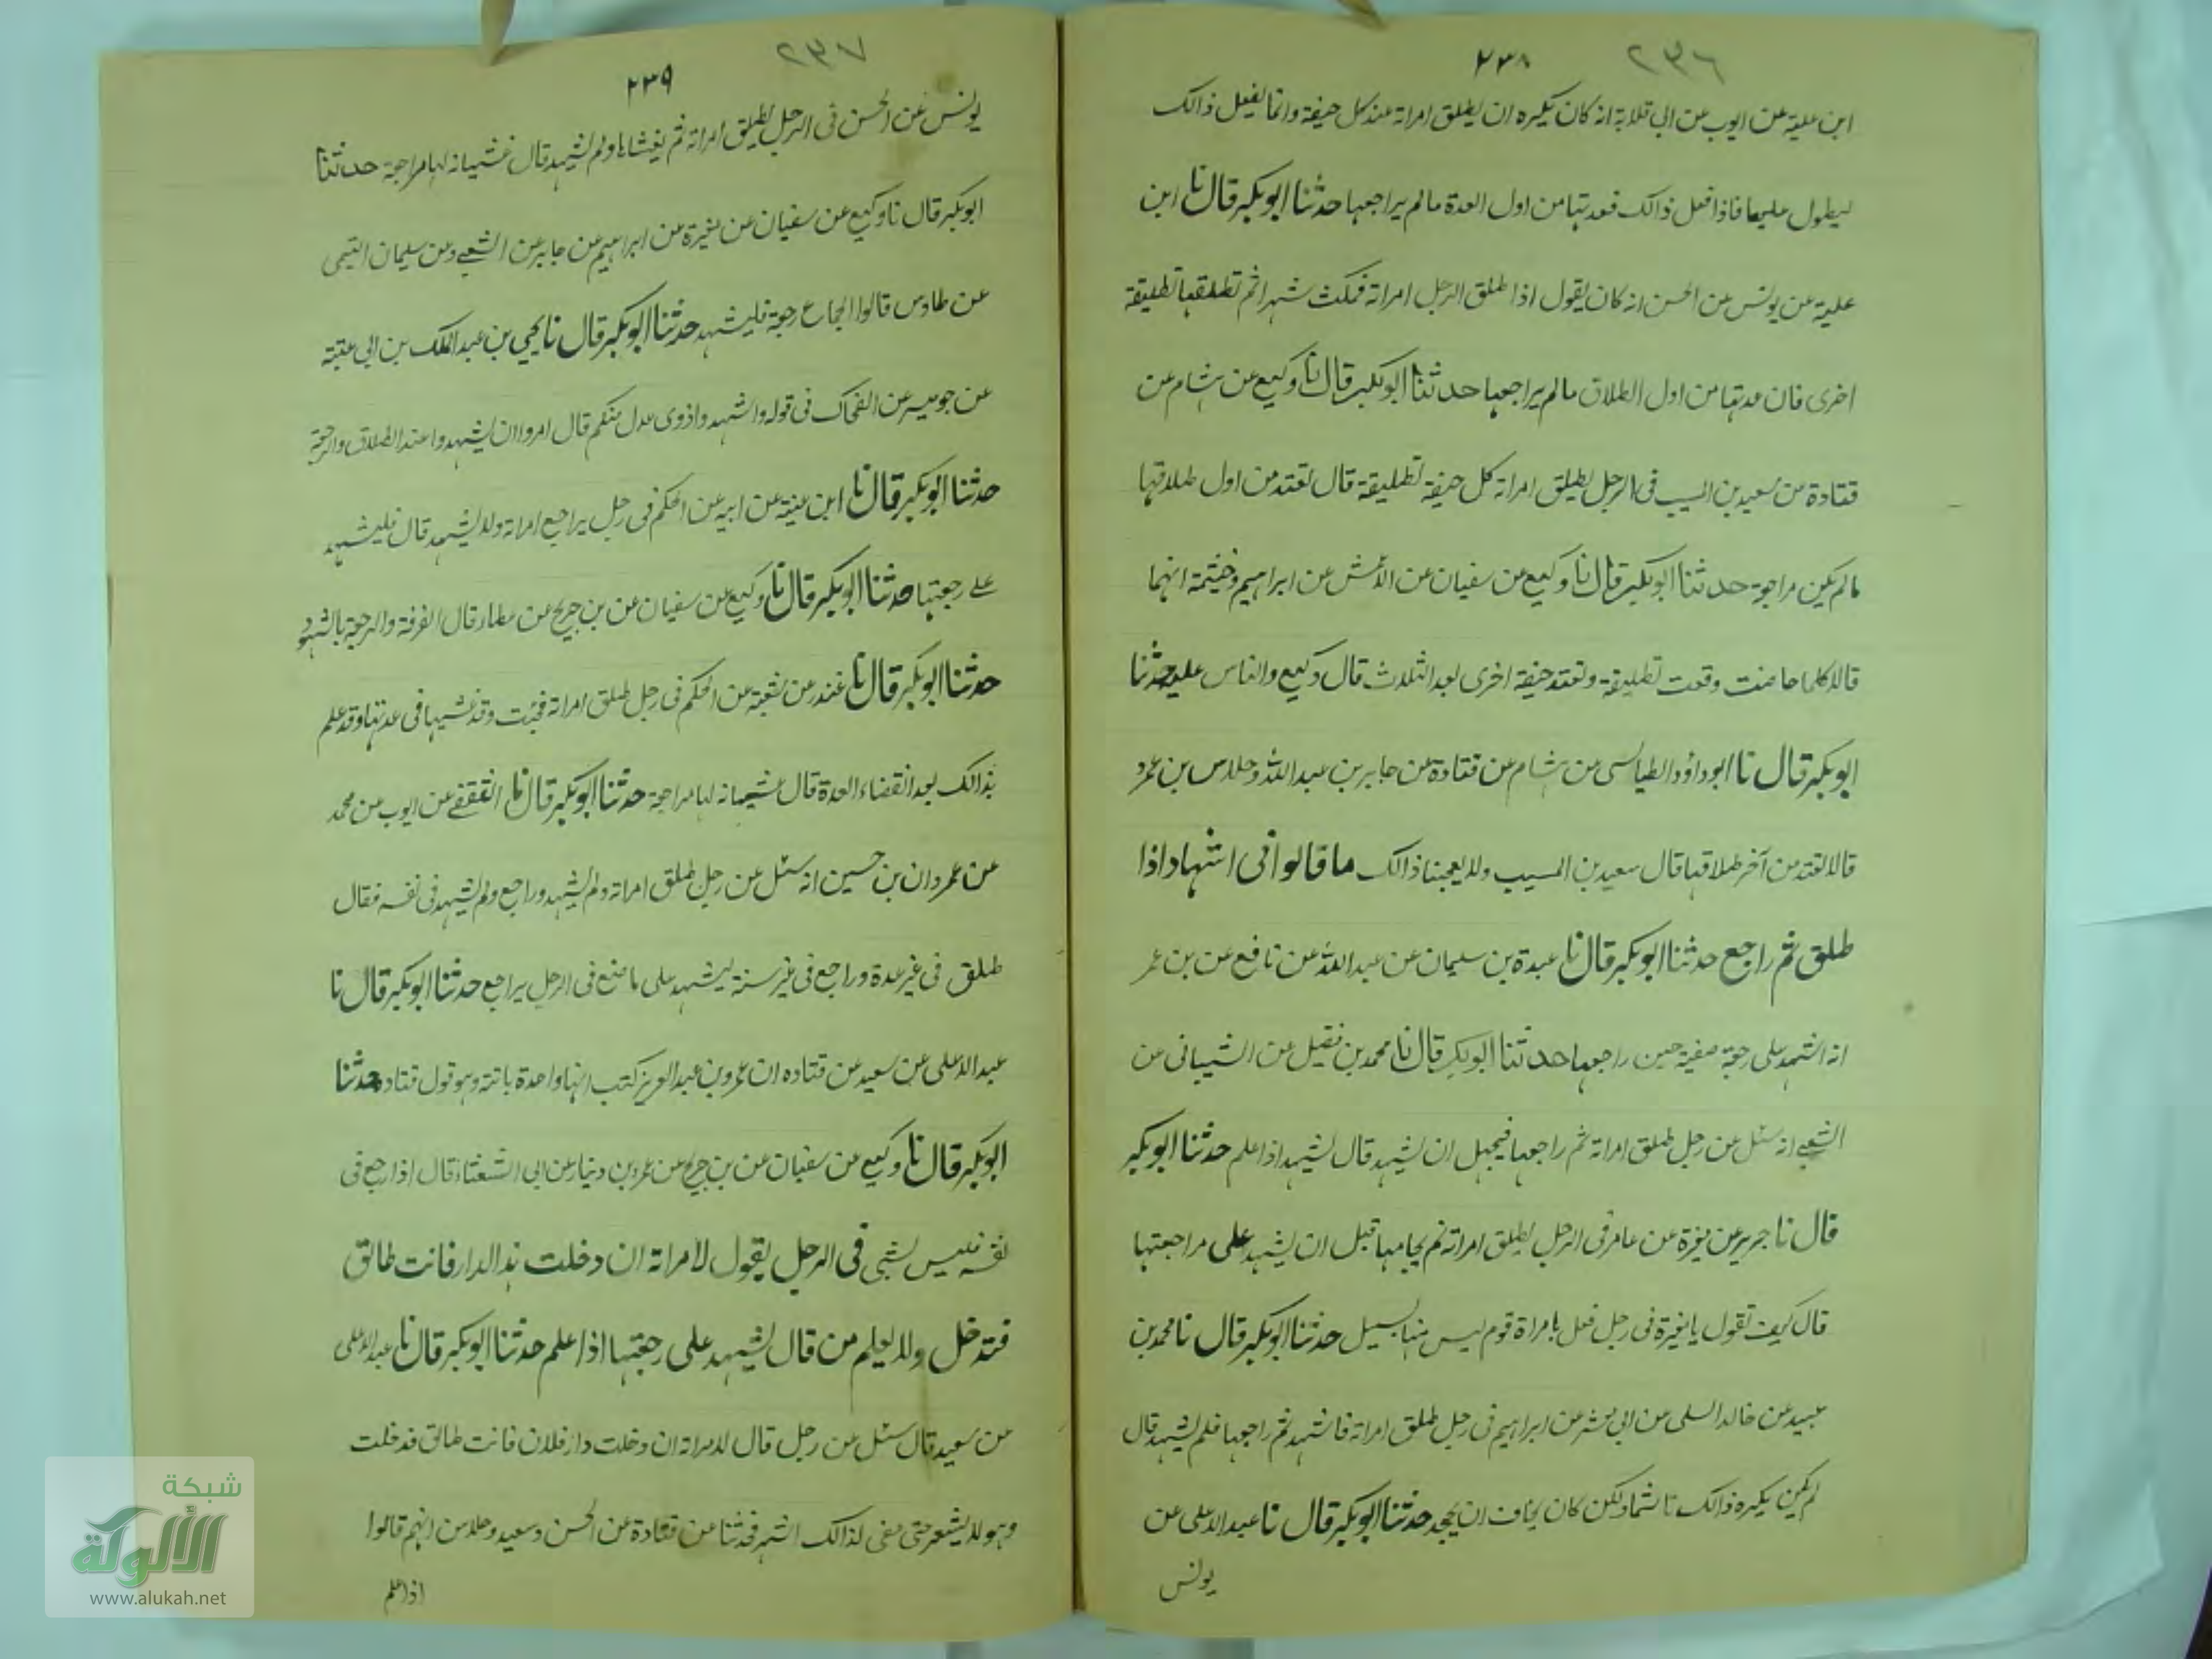 ٢٣٦
٢٣٨
ابن علية عن ايوب عن ابى قلابة انه كان يكره ان يطلق امراته عند كل حيضة وانما يفعل ذالك
ليطول عليها فاذا فعل ذالك فعدتها من اول العدة مالم يراجعها حدثنا ابو بكر قال نا ابن
علية عن يونس عن الحسن انه كان يقول اذا طلق الرجل امراته فمكث شهرا ثم تطلقها تطليقة
اخرى فان عدتها من اول الطلاق مالم يراجعها حدثنا ابو بكر قال نا وكيع عن هشام عن
قتادة عن سعيد بن المسيب فى الرجل يطلق امراته كل حيضة تطليقة قال تعتد من اول طلاقها
مالم يكن مراجعة حدثنا ابو بكر قال نا وكيع عن سفيان عن الاعمش عن ابراهيم وخيثمة انهما
قالا كلما حاضت وقعت تطليقة وتعتد حيضة اخرى بعد الثلاث قال وكيع والناس عليه حدثنا
ابو بكر قال نا ابو داؤد الطيالسى عن هشام عن قتادة عن جابر بن عبد الله وخلاس بن عمرو
قالا تعتد من آخر طلاقها قال سعيد بن المسيب ولا يعجبنا ذالك ما قالوا فى اشهاد اذا
طلق ثم راجع حدثنا ابو بكر قال نا عبدة بن سليمان عن عبد الله عن نافع عن بن عمر
انه اشهد على رجعة صفية حين راجعها حدثنا ابو بكر قال نا محمد بن فضيل عن الشيبانى عن
الشعبے انه سئل عن رجل طلق امراته ثم راجعها فيجهل ان يشهد قال يشهد اذا علم حدثنا ابو بكر
قال نا جرير عن مغيرة عن عامر فى الرجل يطلق امراته ثم يجامعها قبل ان يشهد على مراجعتها
قال كيف تقول يا مغيرة فى رجل فعل بامراة قوم ليس منها بسبيل حدثنا ابو بكر قال نا محمد بن
عبيد عن خالد السلمى عن ابى معشر عن ابراهيم فى رجل طلق امراته فاشهد ثم راجعها فلم يشهد قال
لم يكن يكره ذالك تاثما ولكن كان يخاف ان يجحد حدثنا ابو بكر قال نا عبد الاعلى عن
يونس
٢٣٧
٢٣٩
يونس عن الحسن فى الرجل يطلق امراته ثم يغشاها ولم يشهد قال غشيانه لها مراجعة حدثنا
ابو بكر قال نا وكيع عن سفيان عن مغيرة عن ابراهيم عن جابر عن الشعبے وعن سليمان التيمى
عن طاوس قالوا الجماع رجعة فليشهد حدثنا ابو بكر قال نا يحيى بن عبد الملك بن ابى عتبة
عن جويبر عن الضحاك فى قوله واشهدوا ذوى عدل منكم قال امروا ان يشهدوا عند الطلاق والرجعة
حدثنا ابو بكر قال نا ابن عيينة عن ابيه عن الحكم فى رجل يراجع امراته ولا يشهد قال فليشهد
علے رجعتها حدثنا ابو بكر قال نا وكيع عن سفيان عن بن جريج عن عطاء قال الفرقة والرجعة بالشهود
حدثنا ابو بكر قال نا غندر عن شعبة عن الحكم فى رجل طلق امراته فجئت وقد غشيها فى عدتها وقد علم
بذالك بعد انقضاء العدة قال غشيانه لها مراجعة حدثنا ابو بكر قال نا الثقفے عن ايوب عن محمد
عن عمران بن حسين انه سئل عن رجل طلق امراته ولم يشهد وراجع ولم يشهد فى نفسه فقال
طلق فى غير عدة وراجع فى غير سنة ليشهد على ما صنع فى الرجل يراجع حدثنا ابو بكر قال نا
عبد الاعلى عن سعيد عن قتاده ان عمر بن عبد العزيز كتب انها واحدة بائنة وهو قول قتاده حدثنا
ابو بكر قال نا وكيع عن سفيان عن بن جريج عن عمرو بن دينار عن ابى الشعثاء قال اذا راجع فى
نفسه فليس بشئ فى الرجل يقول لامراته ان دخلت هذ الدار فانت طالق
فتدخل ولا يعلم من قال يشهد على رجعتها اذا علم حدثنا ابو بكر قال نا عبد الاعلى
عن سعيد قال سئل عن رجل قال لامراته ان دخلت دار فلان فانت طالق فدخلت
وهو لا يشعر حتى مضى لذالك اشهر فحدثنا عن قتادة عن الحسن وسعيد وخلاس انهم قالوا
اذا علم
شبكة
الألوكة
www.alukah.net